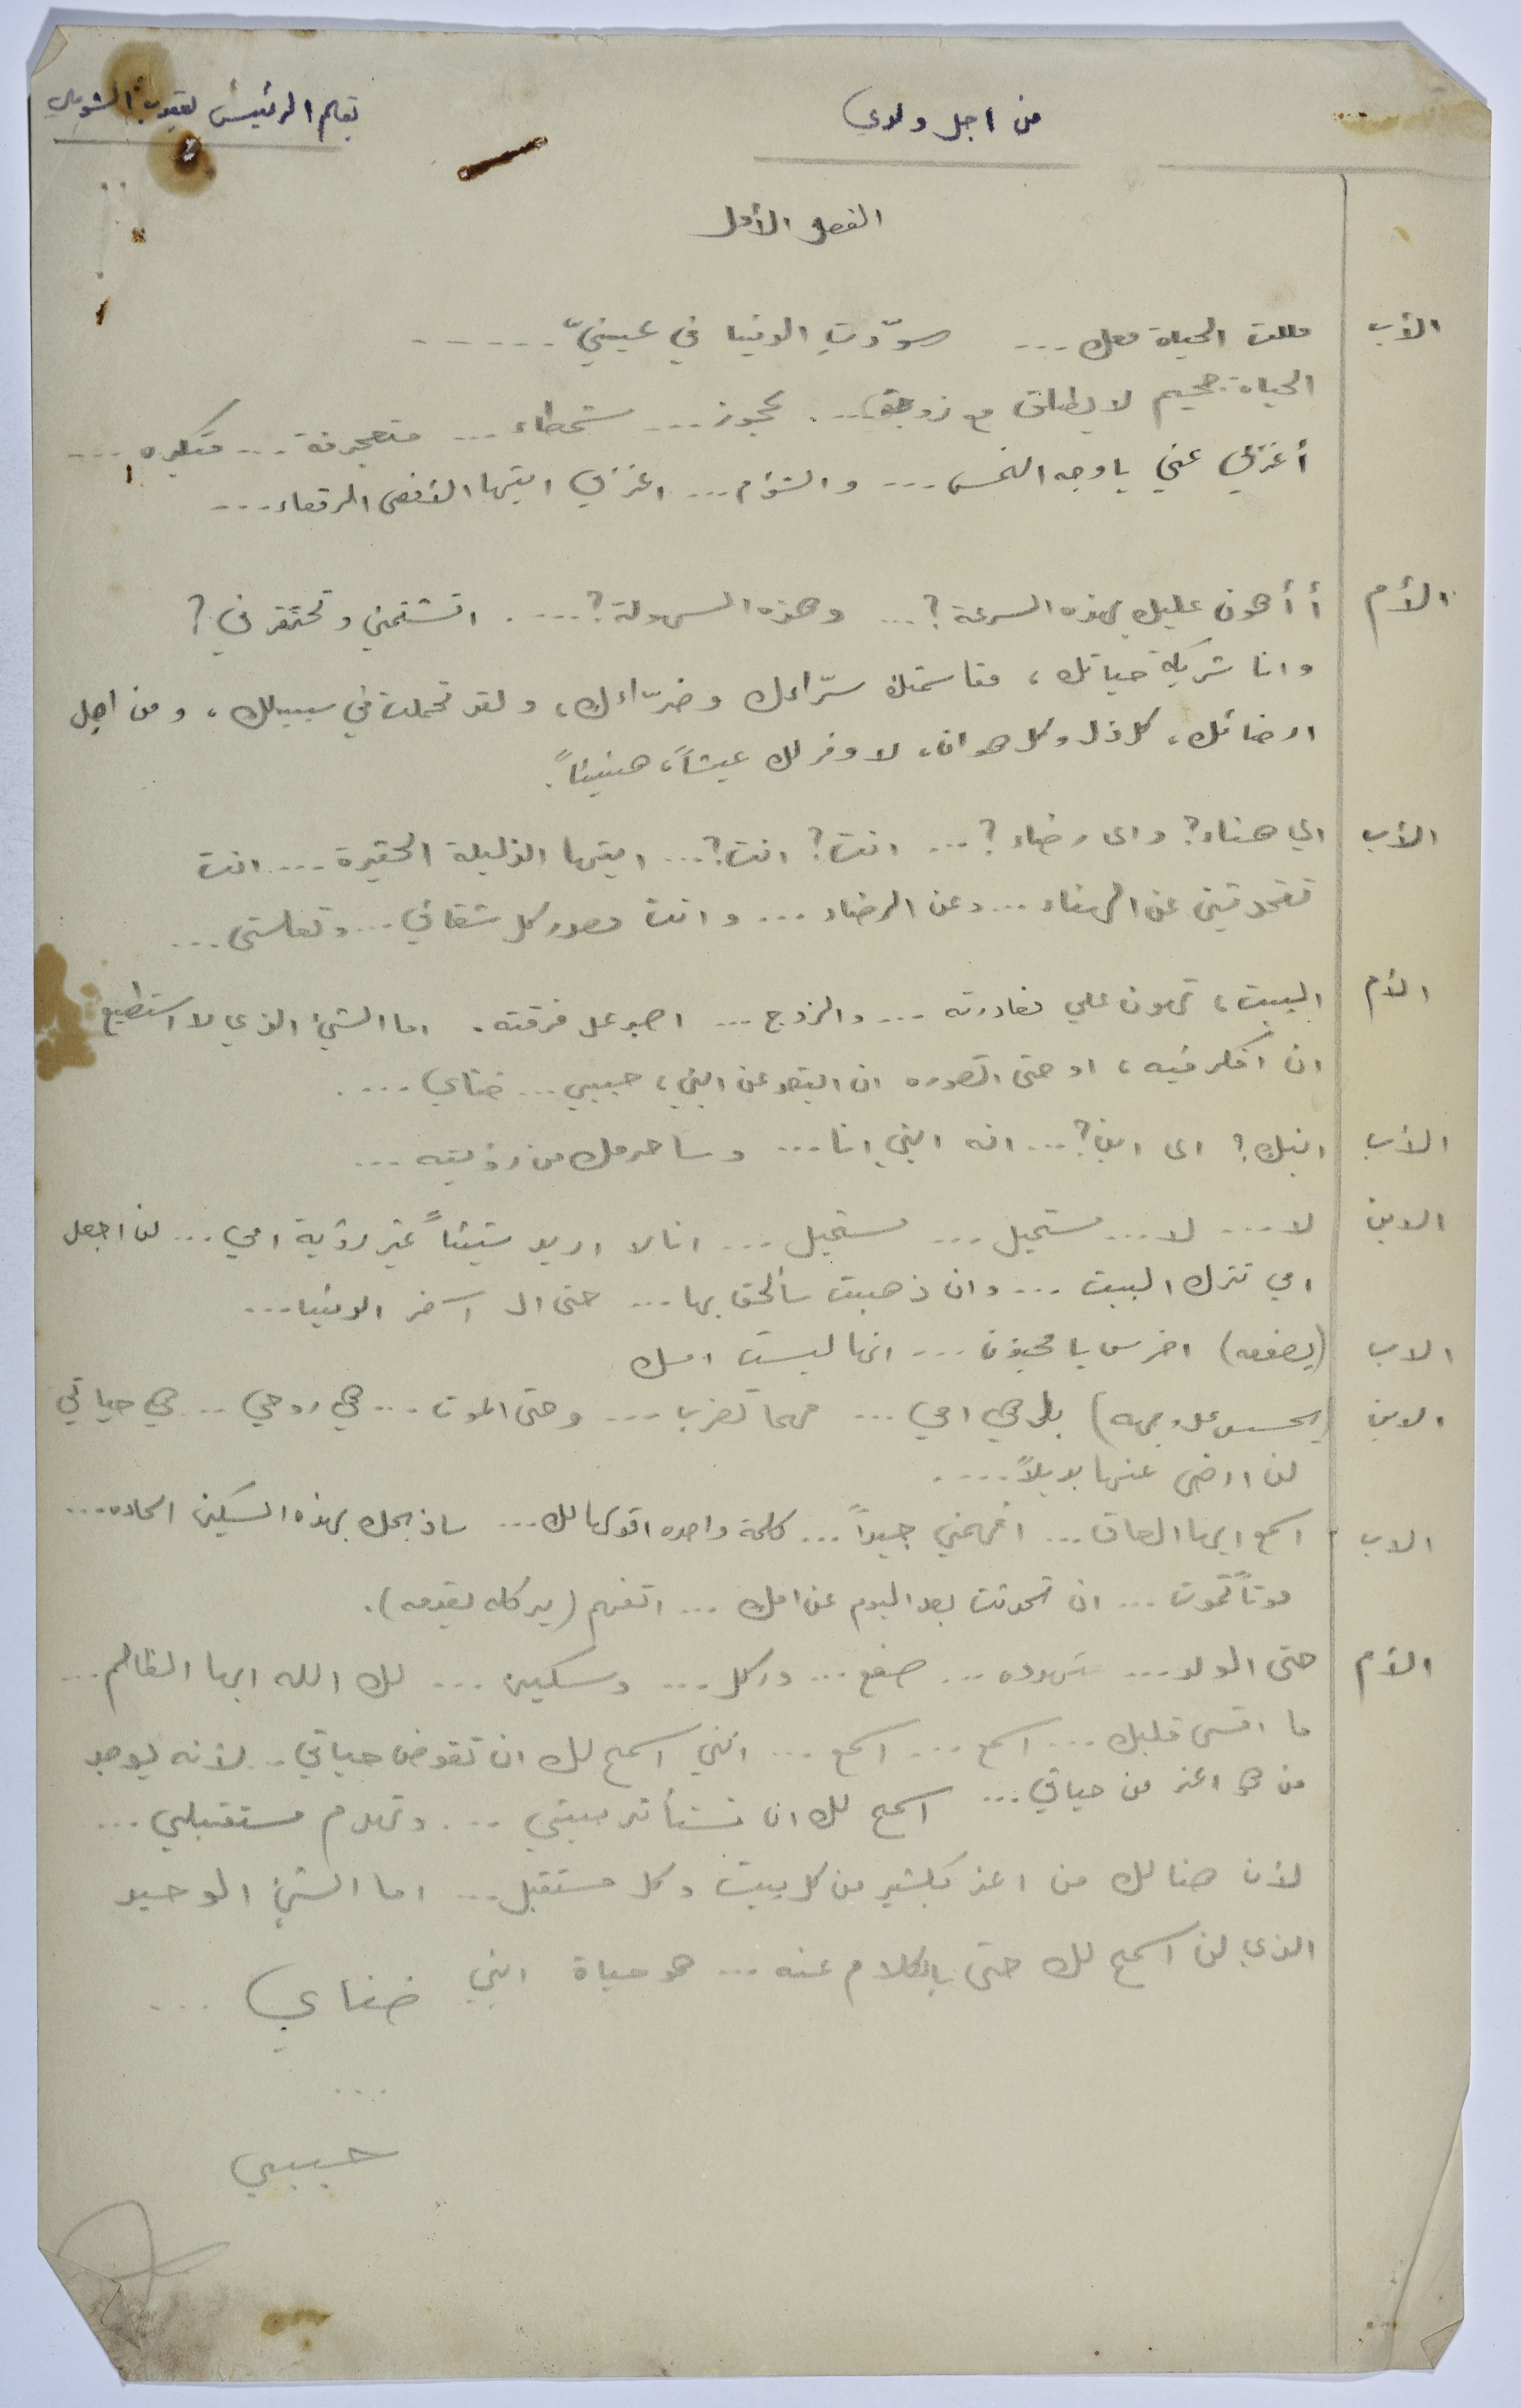 من اجل ولدي
بقلم الرئيس يعقوب الشويلي
الفصل الأول
الأب مللت الحياة معك ... سوّدتِ الدنيا في عينيّ ......
الحياة جحيم لا يطاق مع زوجة... عجوز... شمطاء... متعجرفة... متكبره ...
أغربي عني يا وجه النحس ... والشؤم ... اغربي ايتها الأفعى الرقطاء ...
الأم أ أهون عليك بهذه السرعة؟ ... وهذه السهولة؟ .... اتشتمني وتحتقرني؟
وانا شريكة حياتك، مقاسمتك سرّاءك وضرّاءك، ولقد تحملت في سبيلك، ومن اجل
ارضائك، كل ذل وكل هوان، لاوفر لك عيشاً، هنيئاً.
الأب اي هناء؟ واي رضاء؟ ... انت؟ انت؟ ... ايتها الذليلة الحقيرة .... انت
تتحدثين عن الهناء ... وعن الرضاء ... وانت مصدر كل شقائي ... وتعاستي ...
الأم البيت، تهون علي مغادرته ... والزوج ... اصبر على فرقته. اما الشيء الذي لا استطيع
ان افكر فيه، او حتى اتصوره ان ابتعد عن ابني، حبيبي ... ضناي ....
الأب ابنك؟ اي ابن؟ ... انه ابني انا ... وساحرمك من رؤيته ...
الابن لا ... لا ... مستحيل ... مستحيل ... انا لا اريد شيئاً غير رؤية امي ... لن اجعل
امي تترك البيت ... وان ذهبت سألحق بها ... حتى الى آخر الدنيا ...
الاب (يصفعه) اخرس يا مجنون ... انها ليست امك
الابن (يحسس على وجهه) بل هي امي ... مهما تضرب ... وحتى الموت ... هي روحي ... هي حياتي
لن ارضى عنها بديلاً ....
الاب اسمع ايها العاق ... افهمني جيداً ... كلمة واحده اقولها لك ... ساذبحك بهذه السكين الحاده ....
موتاً تموت ... ان تحدثت بعد اليوم عن امك ... اتفهم (يركله بقدمه).
الأم حتى الولد ... تهدده ... صفع ... وركل ... وسكين ... لك الله ايها الظالم ...
ما اقسى قلبك ... اسمع ... اسمع ... انني اسمح لك ان تقوض حياتي .. لأنه يوجد
من هو اعز من حياتي ... اسمح لك ان تستأثر ببيتي ... وتهدم مستقبلي ...
لأن هنالك من اعز بكثير من كل بيت وكل مستقبل ... اما الشيء الوحيد
الذي لن اسمح لك حتى بالكلام عنه ... هو حياة ابني ضناي ...
...
حبيبي